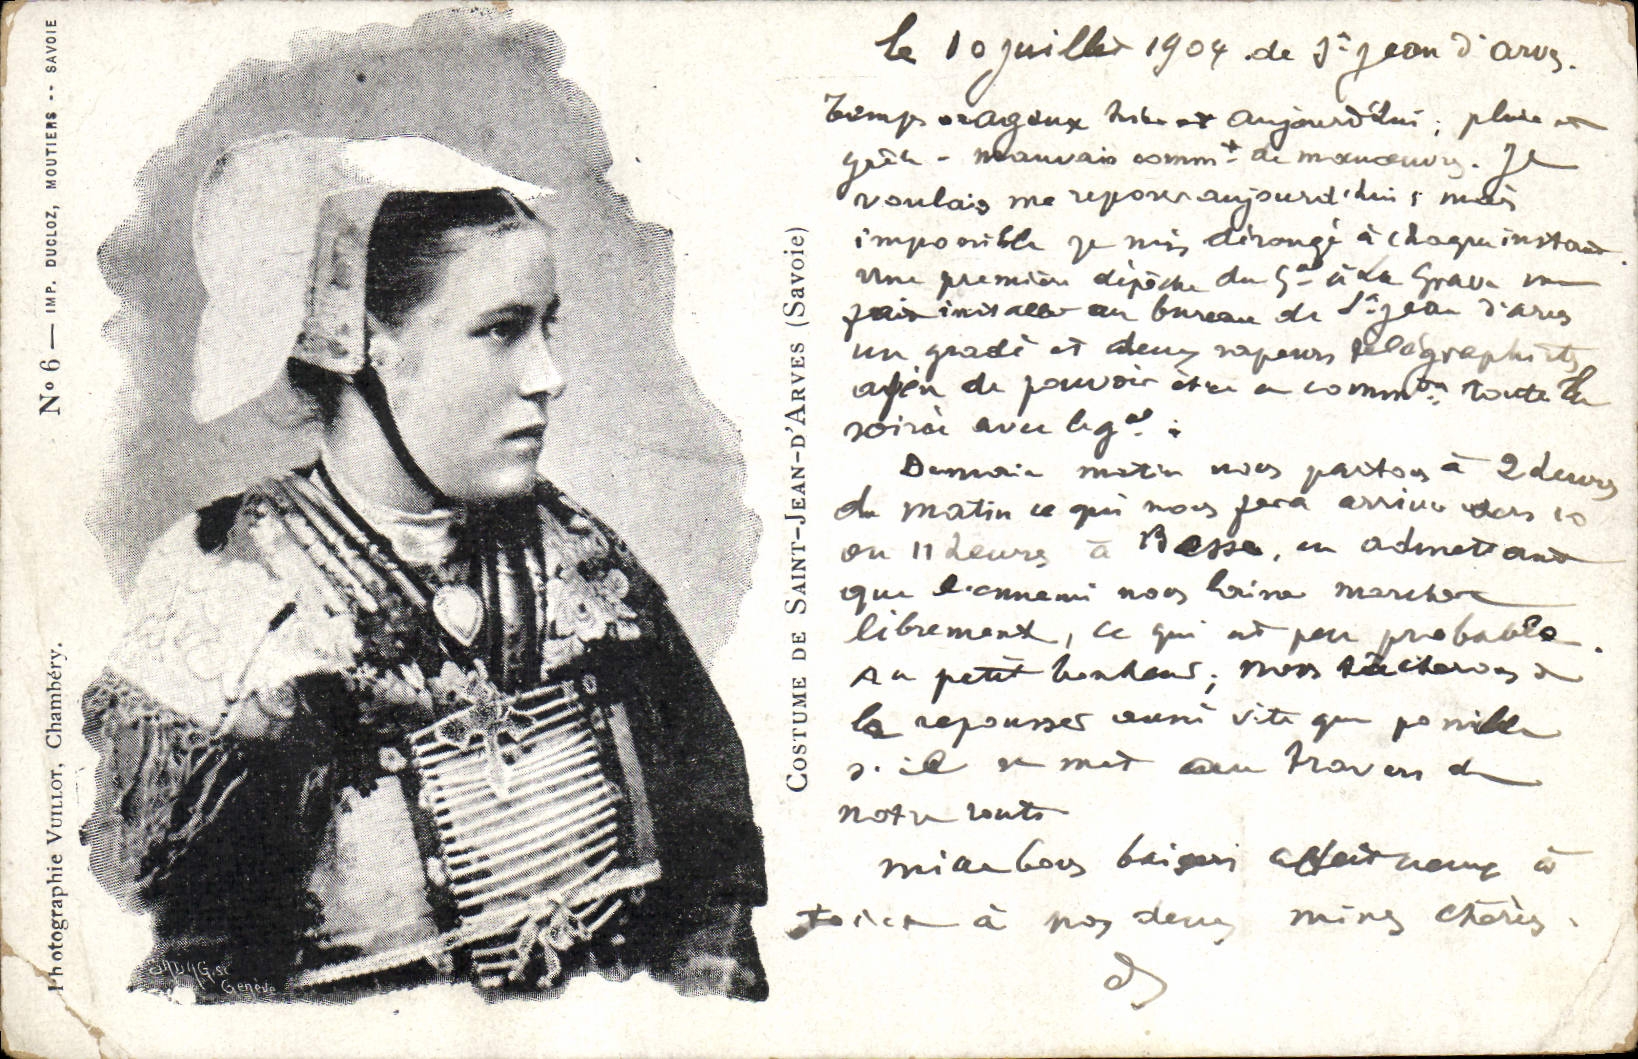 No 6 — IMP. DUCLOZ, MOUTIERS -- SAVOIE
Photographie VUILLOT, Chambéry.
SADAG. sc
Genève
COSTUME DE SAINT-JEAN-D'ARVES (Savoie)
le 10 juillet 1904 de St Jean d'arves.
Temps orageux hier et aujourd'hui ; pluie et
grêle - mauvais commt de manœuvres. Je
voulais me reposer aujourd'hui ; mais
impossible je suis dérangé à chaque instant.
Une première dépêche du Gal à La Grave me
fait installer au bureau de St Jean d'arves
un gradé et deux sapeurs télégraphistes
afin de pouvoir être en common toute la
soirée avec le gal.
Demain matin nous partons à 2 heures
du matin ce qui nous fera arriver vers 10
ou 11 heures à Besse, en admettant
que l'ennemi nous laisse marcher
librement, ce qui est peu probable.
Au petit bonheur ; nous tâcherons de
le repousser aussi vite que possible
s'il se met au travers de
notre route
mille bons baisers affectueux à
toi et à nos deux mines chéries.